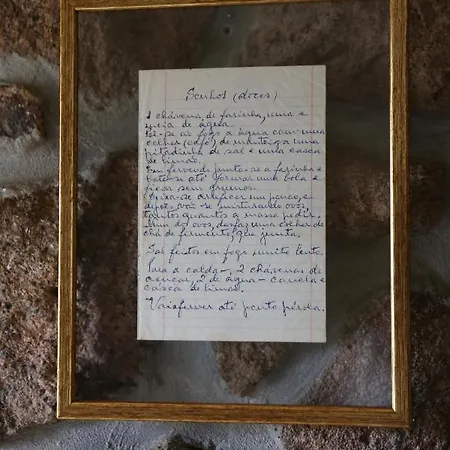 Sonhos (doces)
1 chávena de farinha, uma e
meia de água.
Vai-se ao fogo a água com uma
colher (café) de manteiga uma
pitadinha de sal e uma casca
de limão.
Em fervendo junta-se a farinha e
bate-se até formar uma bola e
ficar sem grumos.
Deixa-se arrefecer um pouco, e
depois vai-se misturando ovos,
tantos quantos a massa pedir.
Num dos ovos, desfaz uma colher de
chá de fermento, que junta.
São feitos em fogo muito lento.
Para a calda -, 2 chávenas de
açúcar, 2 de água - canela e
casca de limão.
Vai a ferver até ponto pérola.